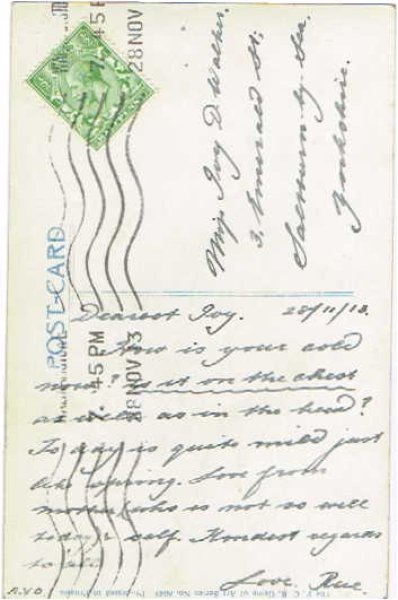 POST CARD
7. 45 PM
28 NOV 13
7. 45 P
28 NOV
Miss Ivy D. Walker,
3, Emerald St;
Saltburn-by-Sea.
Yorkshire.
Dearest Ivy. 28/11/13.
How is your cold
now? Is it on the chest
as well as in the head?
To day is quite mild just
like spring. Love from
mother (who is not so well
today & self. Kindest regards
to all
Love.